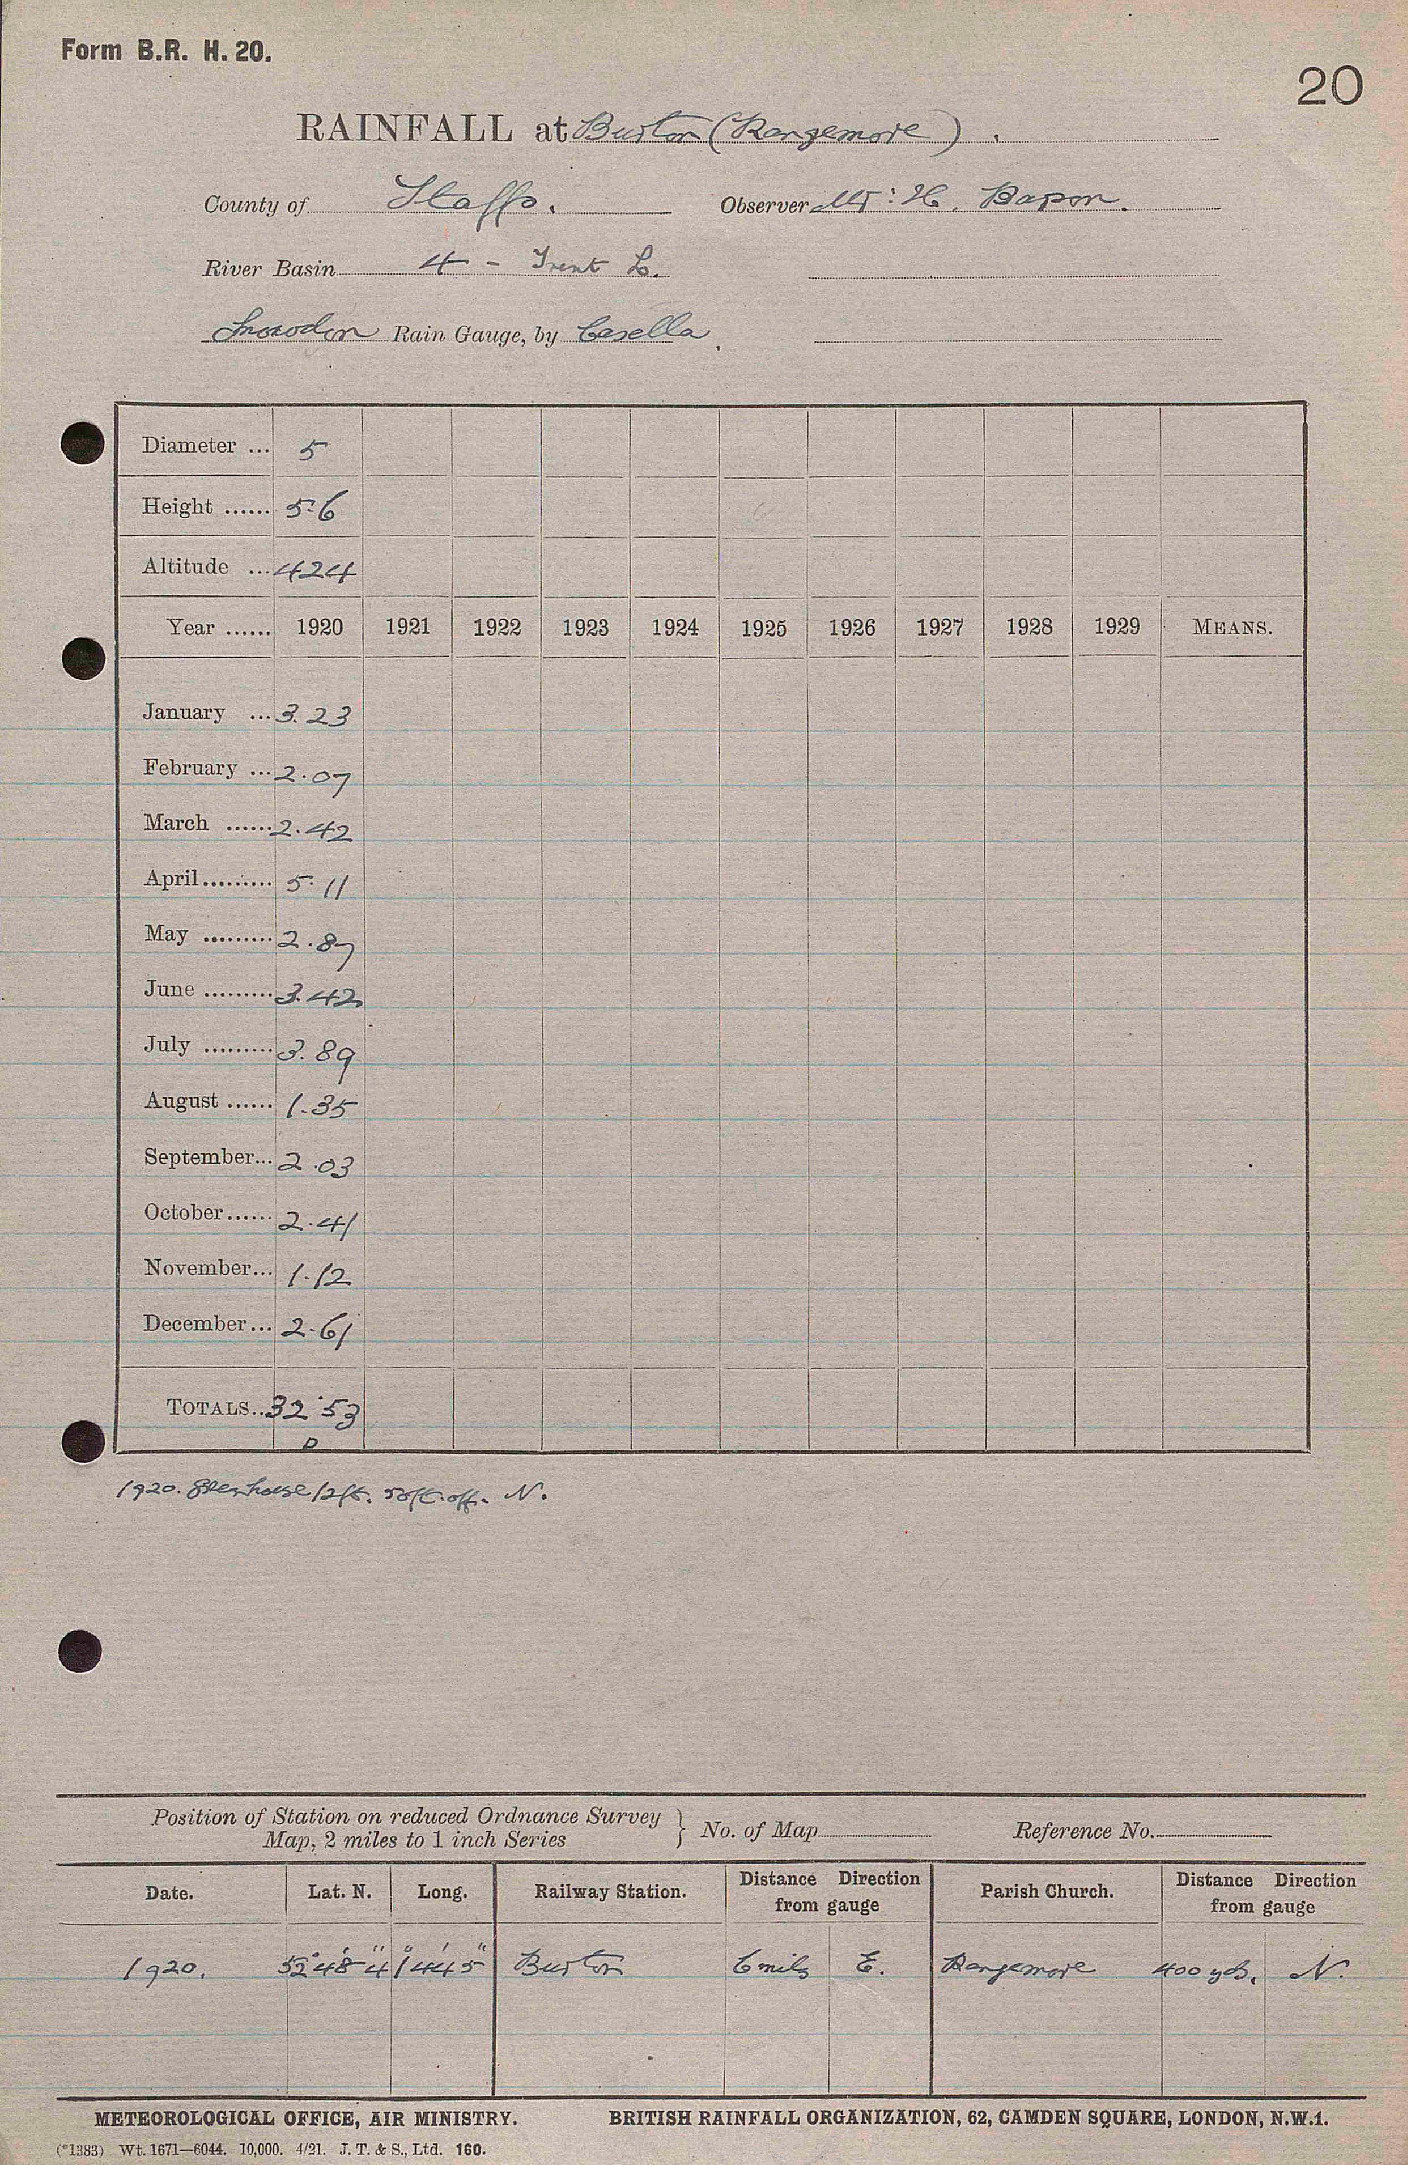 Form B.R. H. 20.
20
RAINFALL at Burton (Rangemore).
County of Staffs. Observer Mr: H. Bapon.
River Basin 4 - Trent L.
Snowdon Rain Gauge, by Casella.
Diameter ... 5
Height ...... 5.6
Altitude ... 424
Year ...... 1920 1921 1922 1923 1924 1925 1926 1927 1928 1929 MEANS.
January ... 3.23
February ... 2.07
March ...... 2.42
April ......... 5.11
May ......... 2.87
June ......... 3.42
July ......... 3.89
August ...... 1.35
September... 2.03
October ...... 2.41
November... 1.12
December... 2.61
TOTALS.. 32.53
D
1920. Greenhouse 12ft. 50ft. off. N.
Position of Station on reduced Ordnance Survey
Map, 2 miles to 1 inch Series } No. of Map Reference No.
Date. Lat. N. Long. Railway Station. Distance Direction from gauge Parish Church. Distance Direction from gauge
1920. 52° 48' 4" 1° 44' 5" Burton 6 mils E. Rangemore 400 yds. N.
METEOROLOGICAL OFFICE, AIR MINISTRY. BRITISH RAINFALL ORGANIZATION, 62, CAMDEN SQUARE, LONDON, N.W.1.
(*1383) Wt. 1671—6044. 10,000. 4/21. J. T. & S., Ltd. 160.